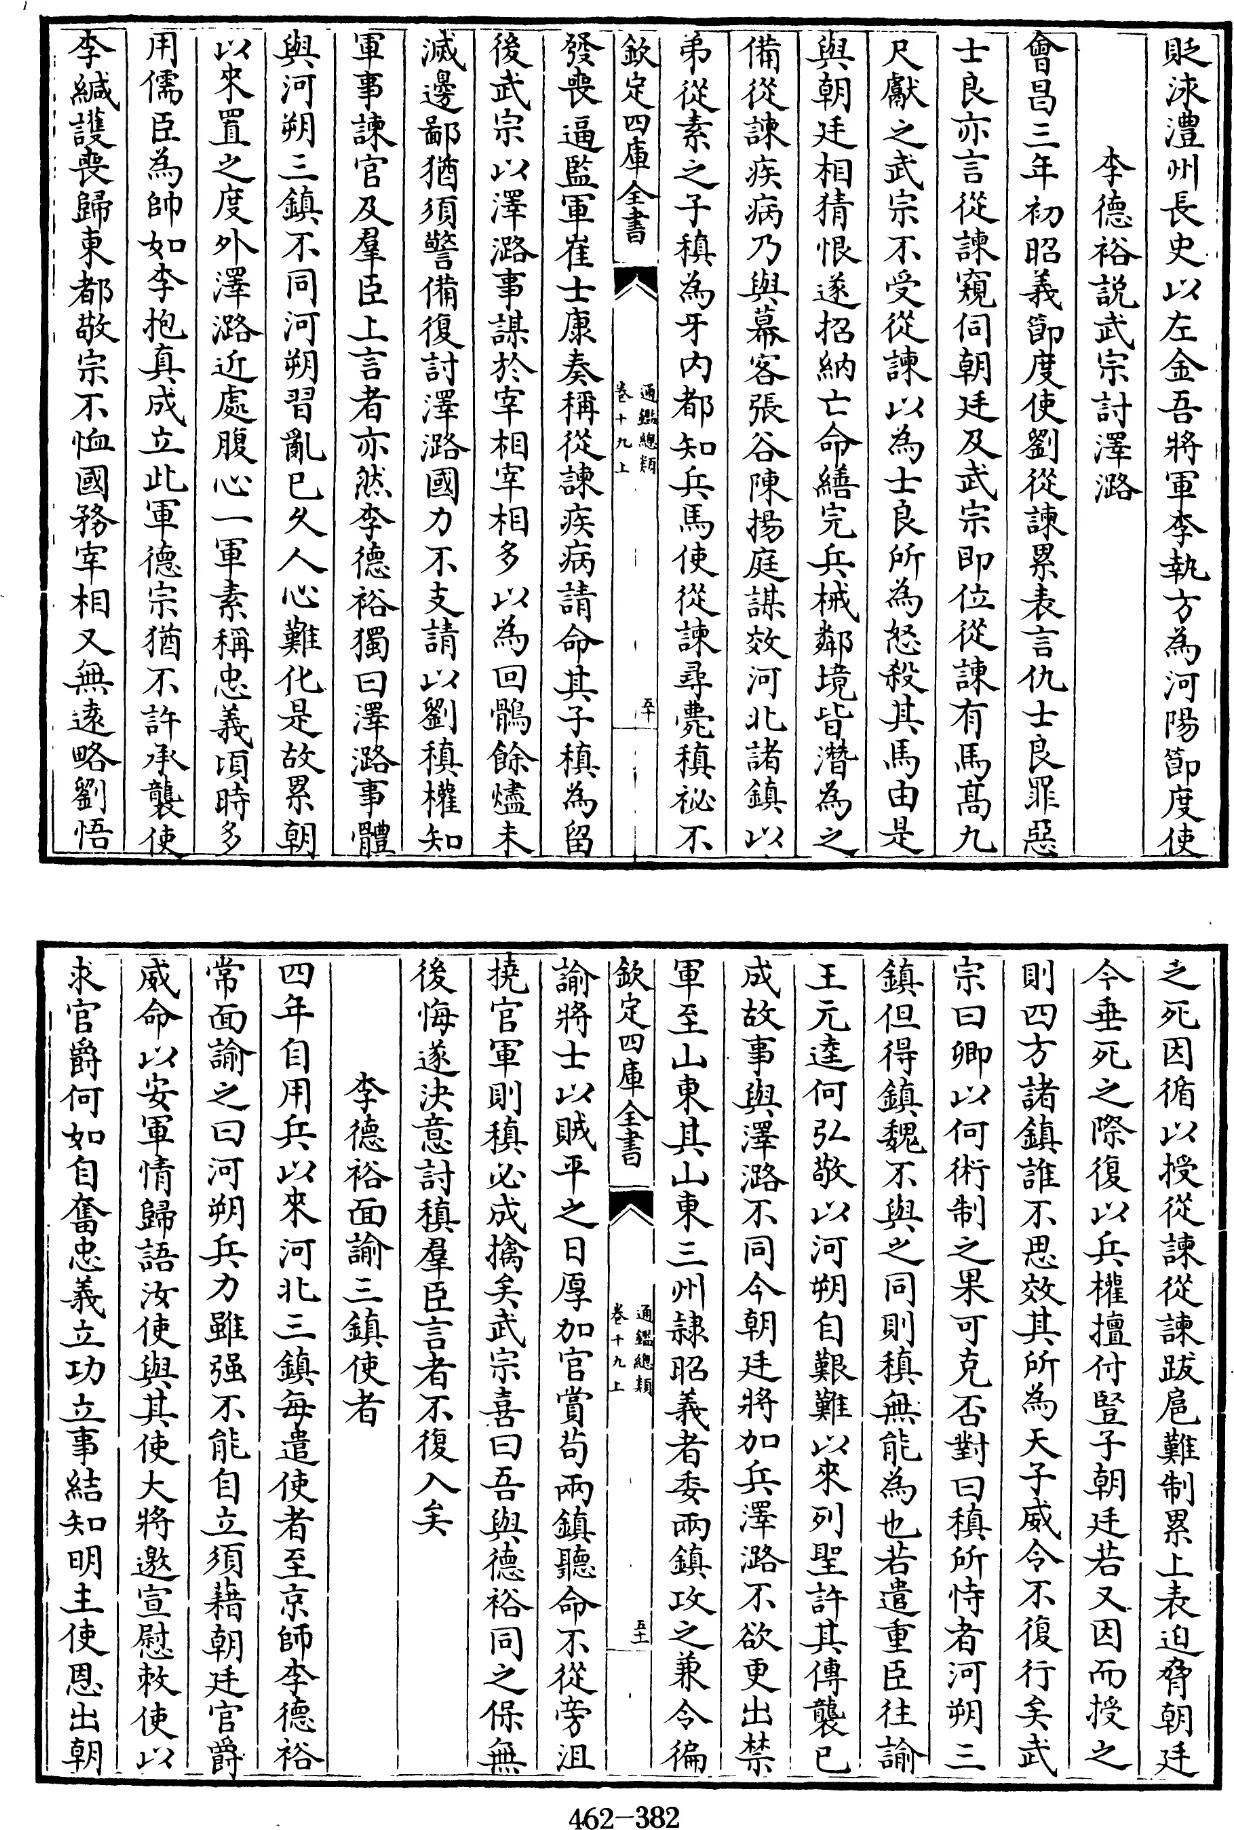 貶洙澧州長史以左金吾將軍李執方為河陽節度使
李德裕説武宗討澤潞
會昌三年初昭義節度使劉從諫累表言仇士良罪惡
士良亦言從諫窺伺朝廷及武宗即位從諫有馬髙九
尺獻之武宗不受從諫以為士良所為怒殺其馬由是
與朝廷相猜恨遂招納亡命繕完兵械鄰境皆潛為之
備從諫疾病乃與幕客張谷陳揚庭謀效河北諸鎮以
弟從素之子稹為牙内都知兵馬使從諫尋薨稹祕不
欽定四庫全書
通鑑總類
卷十九上
五十
發喪逼監軍崔士康奏稱從諫疾病請命其子稹為留
後武宗以澤潞事謀於宰相宰相多以為回鶻餘燼未
滅邊鄙猶須警備復討澤潞國力不支請以劉稹權知
軍事諫官及羣臣上言者亦然李德裕獨曰澤潞事體
與河朔三鎮不同河朔習亂已久人心難化是故累朝
以來置之度外澤潞近處腹心一軍素稱忠義頃時多
用儒臣為帥如李抱真成立此軍德宗猶不許承襲使
李緘護喪歸東都敬宗不恤國務宰相又無逺略劉悟
之死因循以授從諫從諫跋扈難制累上表迫脅朝廷
今垂死之際復以兵權擅付豎子朝廷若又因而授之
則四方諸鎮誰不思效其所為天子威令不復行矣武
宗曰卿以何術制之果可克否對曰稹所恃者河朔三
鎮但得鎮魏不與之同則稹無能為也若遣重臣往諭
王元逵何弘敬以河朔自艱難以來列聖許其傳襲已
成故事與澤潞不同今朝廷將加兵澤潞不欲更出禁
軍至山東其山東三州隷昭義者委兩鎮攻之兼令徧
欽定四庫全書
通鑑總類
卷十九上
五十一
諭將士以賊平之日厚加官賞茍兩鎮聽命不從旁沮
撓官軍則稹必成擒矣武宗喜曰吾與德裕同之保無
後悔遂決意討稹羣臣言者不復入矣
李德裕面諭三鎮使者
四年自用兵以來河北三鎮每遣使者至京師李德裕
常面諭之曰河朔兵力雖强不能自立須藉朝廷官爵
威命以安軍情歸語汝使與其使大將邀宣慰敕使以
求官爵何如自奮忠義立功立事結知明主使恩出朝
462-382